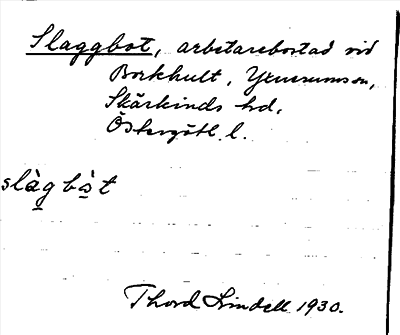 Slaggbot, arbetarebostad vid
Borkhult, Yxnerums sn,
Skärkinds hd,
Östergötl. l.
slàg bò̀t
Thord Lindell 1930.